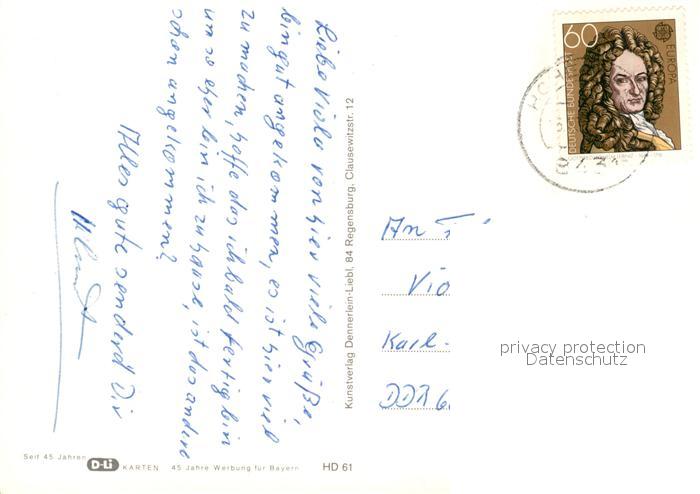 Liebe Viola von hier viele Grüße,
bin gut angekommen, es ist hier viel
zu machen, hoffe das ich bald fertig bin
um so eher bin ich zu hause, ist das andere
schon angekommen?
Alles gute sendend Dir
Kunstverlag Dennerlein-Liebl, 84 Regensburg, Clausewitzstr. 12
60
EUROPA
DEUTSCHE BUNDESPOST
An
Vio
Karl-
DDR 6
privacy protection
Datenschutz
Seit 45 Jahren
D-Li KARTEN 45 Jahre Werbung für Bayern HD 61